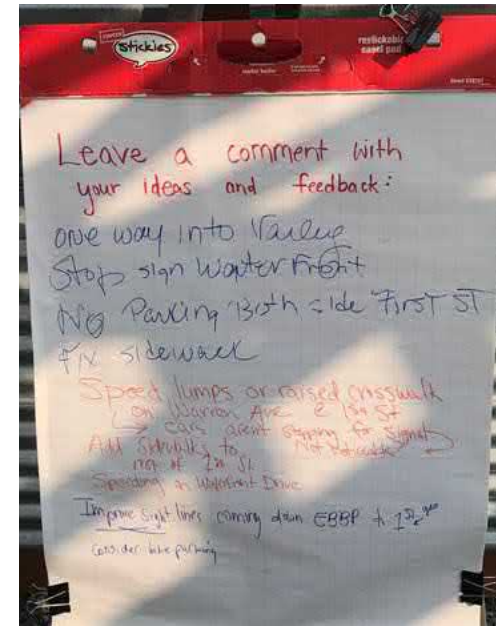 stickies
restickable
easel pad
Leave a comment with
your ideas and feedback:
one way into
Stop sign Water Front
No Parking Both side First ST
Fix sidewalk
Speed lumps or raised crosswalk
on Warren Ave & 1st St
→ cars aren't stopping for signal
Not noticeable
Add sidewalks to
rest of 1st St.
Speeding on Waterfront Drive
Improve sight lines coming down EBBP + 1st
consider bike parking